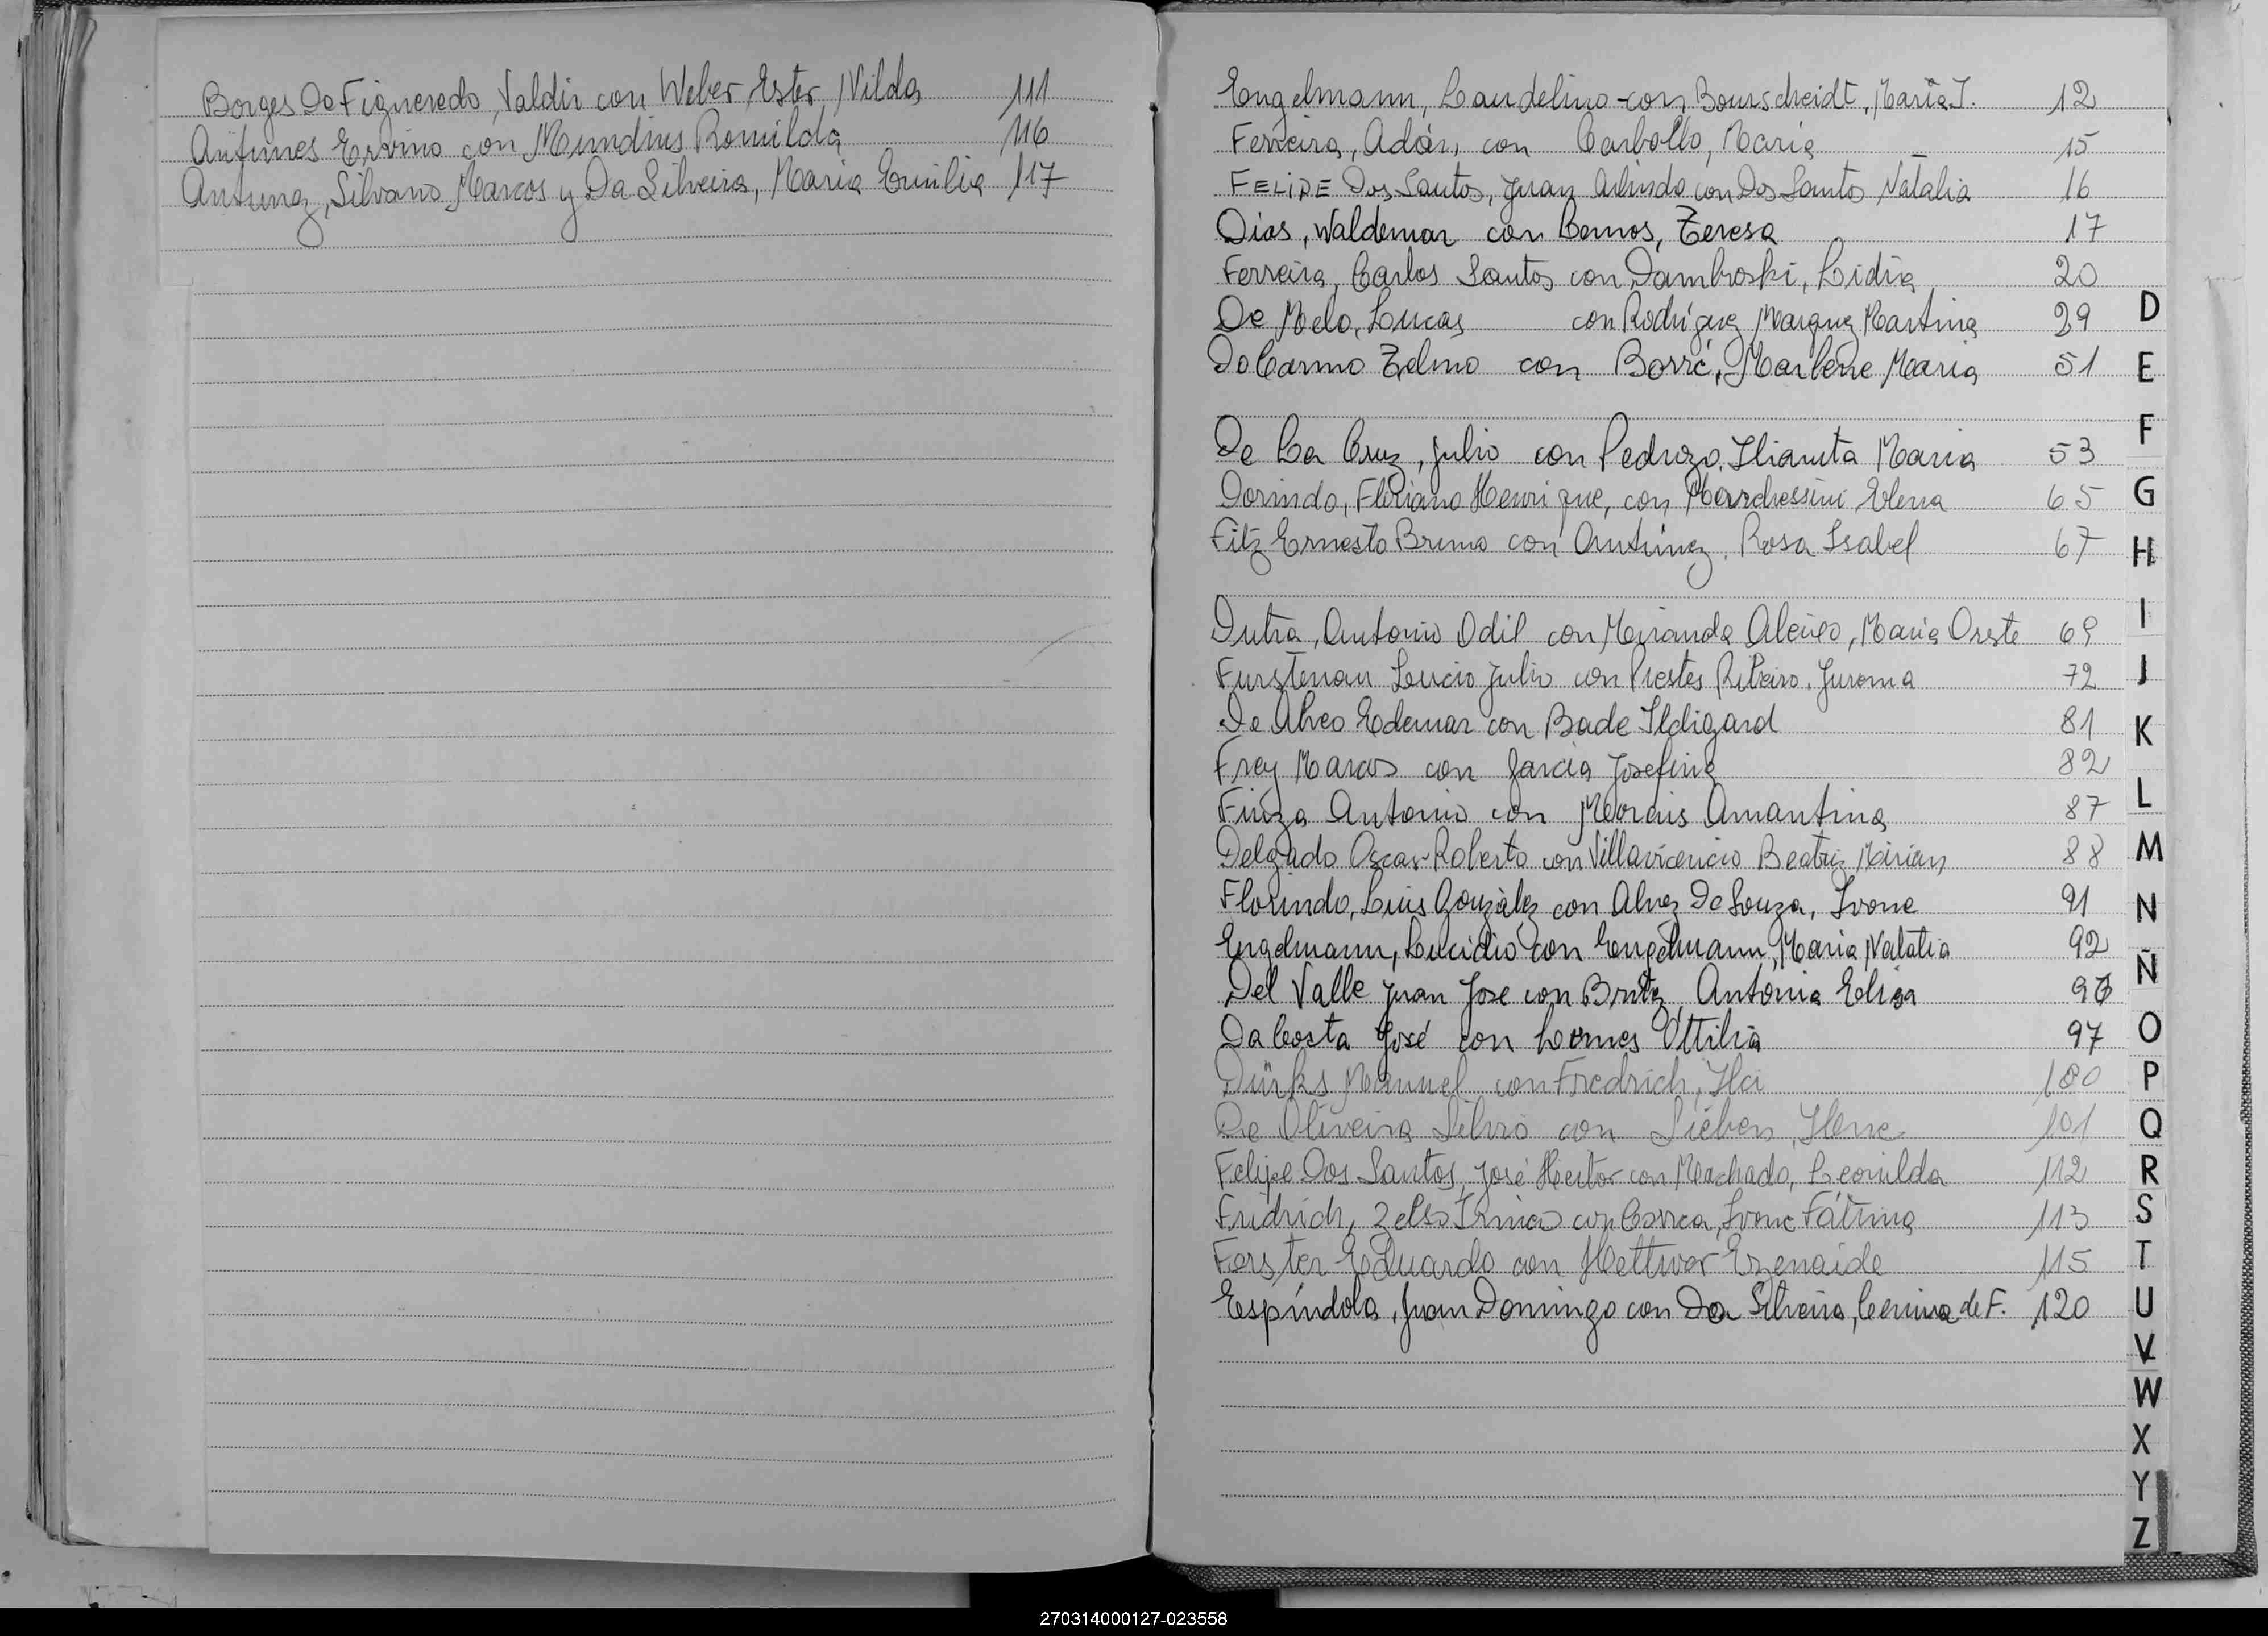 Borges Da Figueredo, Valdir con Weber, Ester, Nilda 111
Antunes Ervino con Mundius Romilda 116
Antunez, Silvano Marcos y Da Silveira, Maria Emilia 117
Engelmann, Laudelino con Bourscheidt, Maria I. 12
Ferreira, Adán, con Carbollo, Maria 15
FELIPE Dos Santos, Juan Arlindo con Dos Santos Natalia 16
Dias, Waldemar con Lemos, Teresa 17
Ferreira, Carlos Santos con Dambroski, Lidia 20
De Melo, Lucas con Rodríguez Marquez Martina 29
Do Carmo Zelmo con Borré, Marlene Maria 51
De La Cruz, Julio con Pedrozo, Iliamta Maria 53
Dorindo, Floriano Henrique, con Marchessini Elena 65
Fitz Ernesto Bruno con Antúnez, Rosa Isabel 67
Dutra, Antonio Odil con Miranda, Maria Oreste 69
Furstenau Lucio Julio con Prestes Ribeiro, Jurema 72
De Alveo Edemar con Bade Ildigard 81
Frey Marcos con Garcia Josefina 82
Fiuza Antonio con Morais Amantina 87
Delgado Oscar Roberto con Villavicencio Beatriz Mirian 88
Florindo, Luis González con Alvez De Souza, Ivone 91
Engelmann, Lucidio con Engelmann, Maria Natalia 92
Del Valle Juan José con Britez, Antonia Elisa
Da Costa José con Lemes Ottilia 97
Dürks Manuel con Fredrich, Ilci 100
De Oliveira Silvio con Sieben, Ilene 101
Felipe Dos Santos, José Hector con Machado, Leonilda 112
Fridrich, Zelso Irineo con Correa, Ivone Fátima 113
Forster Eduardo con Hettwer Ezenaide 115
Espíndola, Juan Domingo con Da Silveira, Cenira de F. 120
D
E
F
G
H
I
J
K
L
M
N
Ñ
O
P
Q
R
S
T
U
V
W
X
Y
Z
270314000127-023558